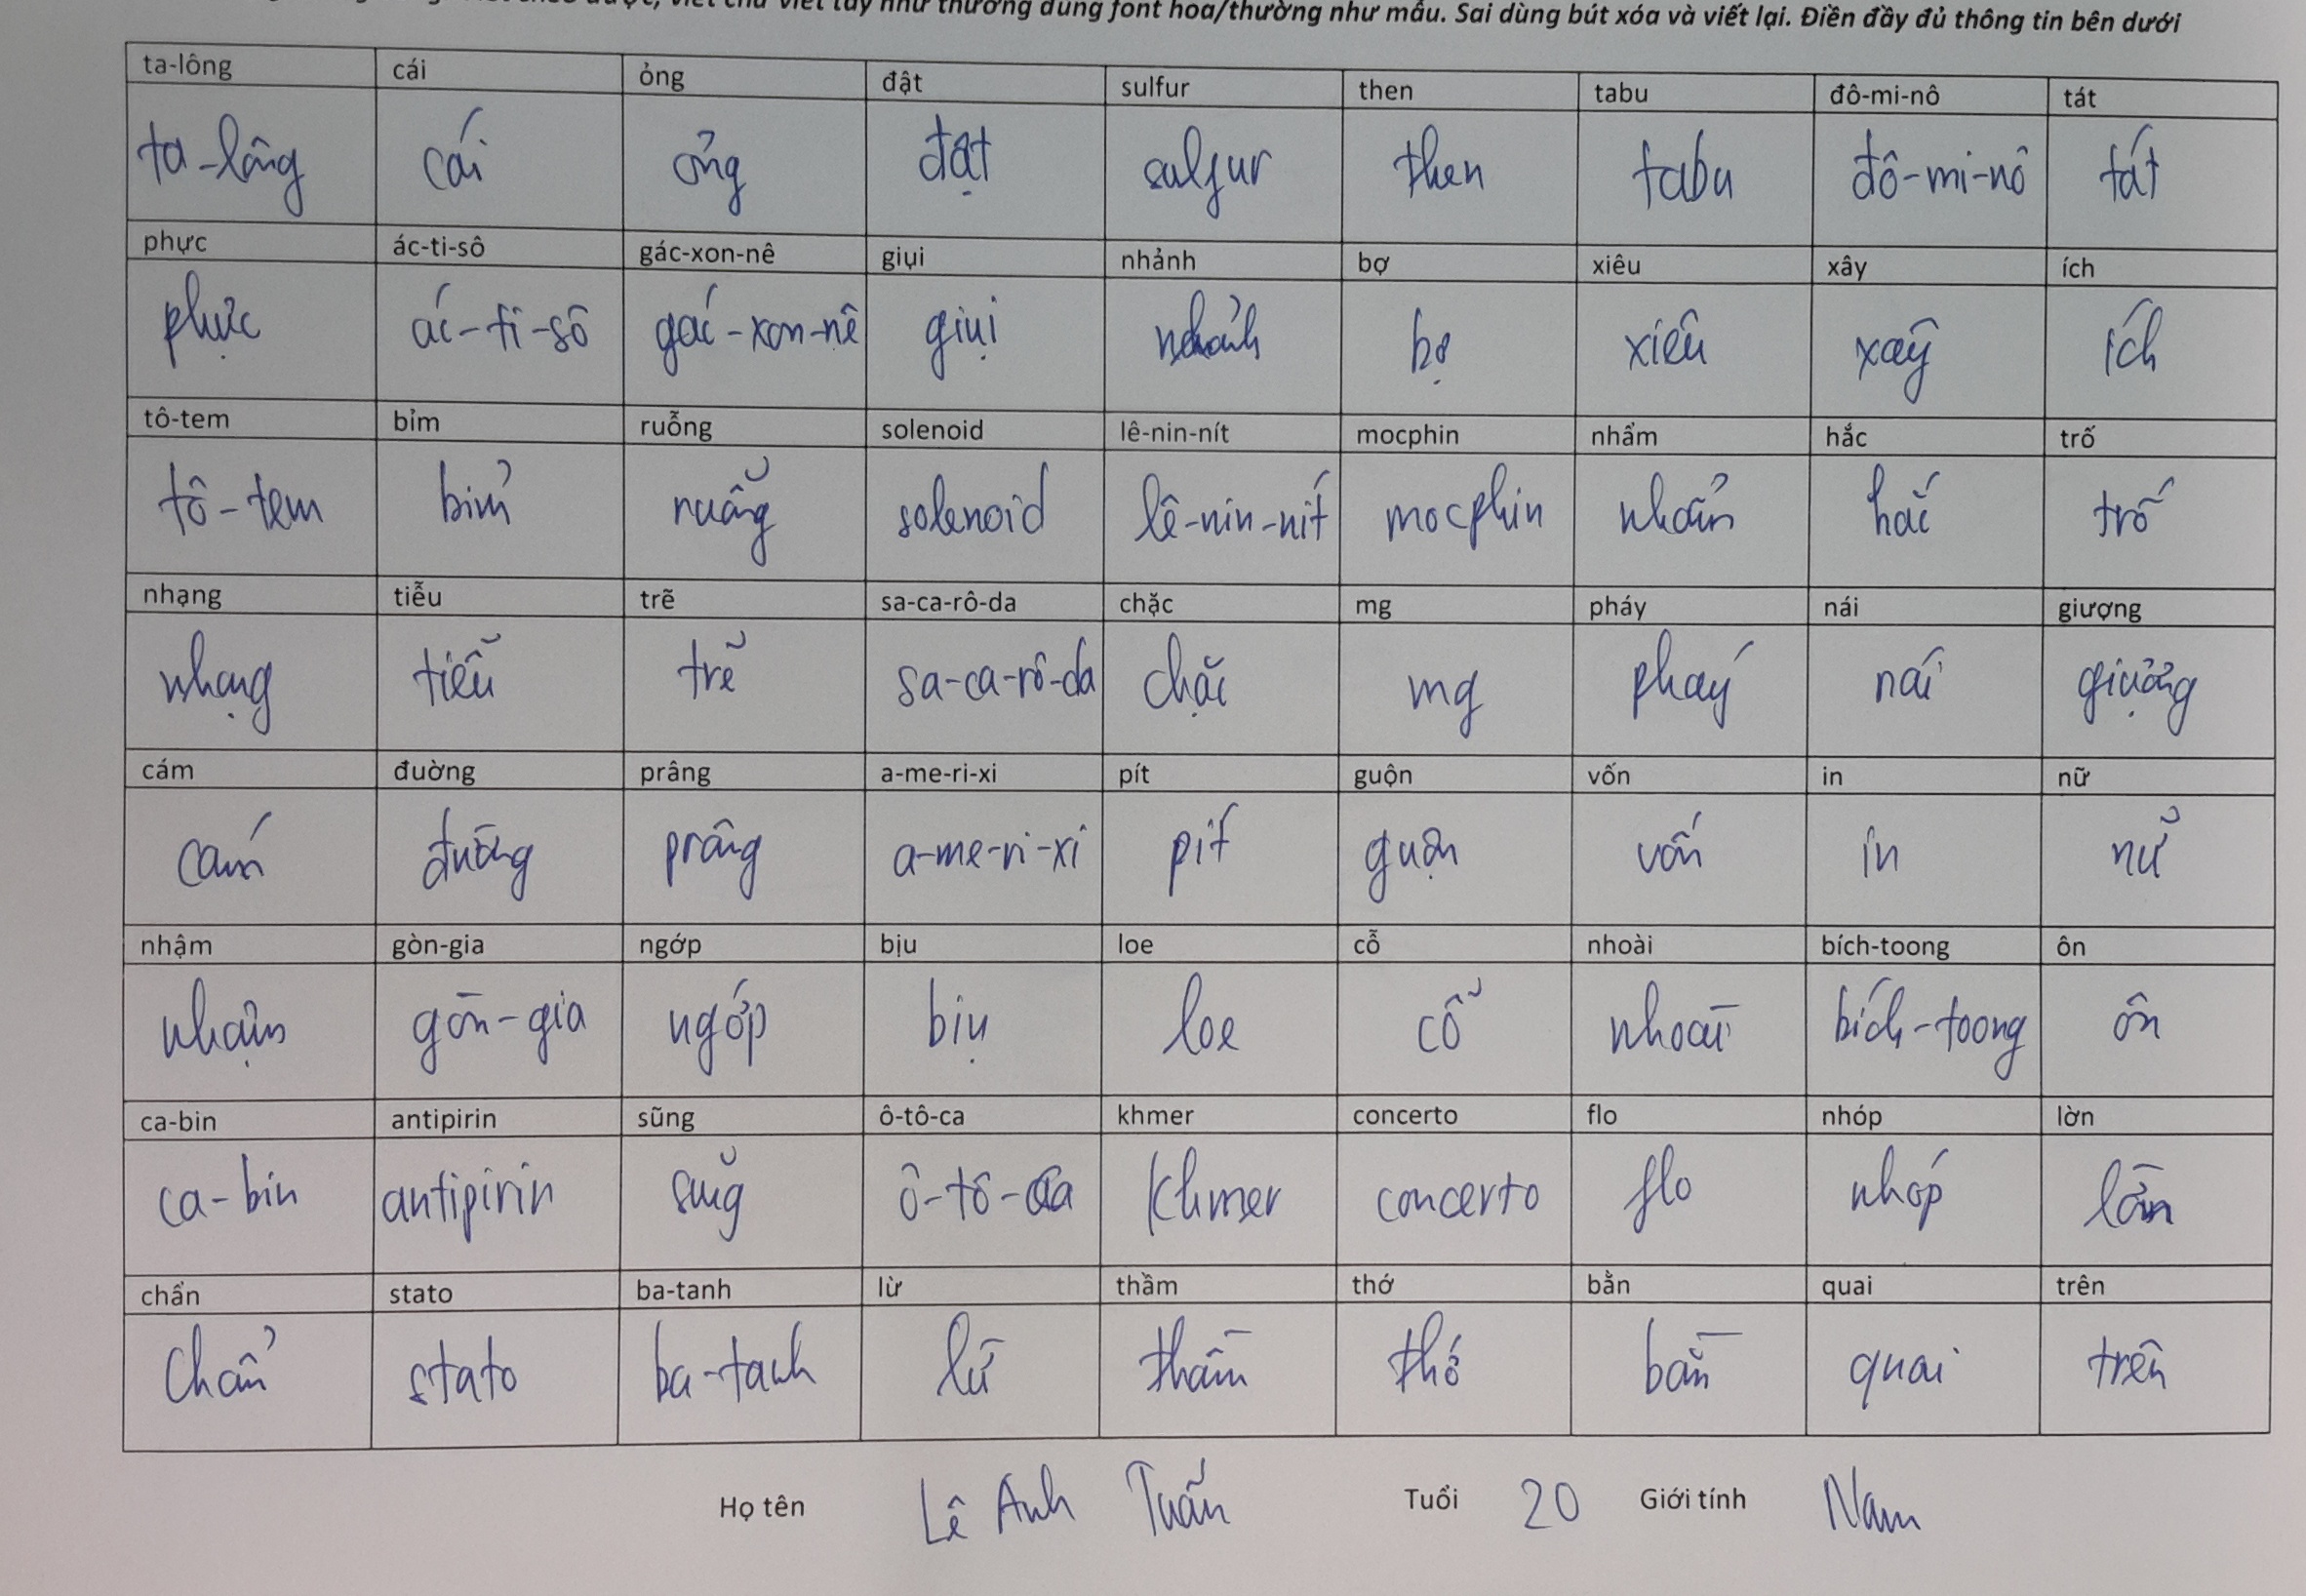 viết chữ viết tay như thường dùng font hoa/thường như mẫu. Sai dùng bút xóa và viết lại. Điền đầy đủ thông tin bên dưới
ta-lông cái ỏng đật sulfur then tabu đô-mi-nô tát
ta-lông cái ỏng đật sulfur then tabu đô-mi-nô tát
phực ác-ti-sô gác-xon-nê giụi nhảnh bợ xiêu xây ích
phực ác-ti-sô gác-xon-nê giụi nhảnh bợ xiêu xây ích
tô-tem bỉm ruỗng solenoid lê-nin-nít mocphin nhẩm hắc trố
tô-tem bỉm ruỗng solenoid lê-nin-nít mocphin nhẩm hắc trố
nhạng tiễu trẽ sa-ca-rô-da chặc mg pháy nái giượng
nhạng tiễu trẽ sa-ca-rô-da chặc mg pháy nái giượng
cám đuờng prâng a-me-ri-xi pít guộn vốn in nữ
cám đuờng prâng a-me-ri-xi pít guộn vốn in nữ
nhậm gòn-gia ngớp bịu loe cỗ nhoài bích-toong ôn
nhậm gòn-gia ngớp bịu loe cỗ nhoài bích-toong ôn
ca-bin antipirin sũng ô-tô-ca khmer concerto flo nhóp lờn
ca-bin antipirin sũng ô-tô-ca khmer concerto flo nhóp lờn
chẩn stato ba-tanh lừ thầm thớ bằn quai trên
chẩn stato ba-tanh lừ thầm thớ bằn quai trên
Họ tên Lê Anh Tuấn Tuổi 20 Giới tính Nam